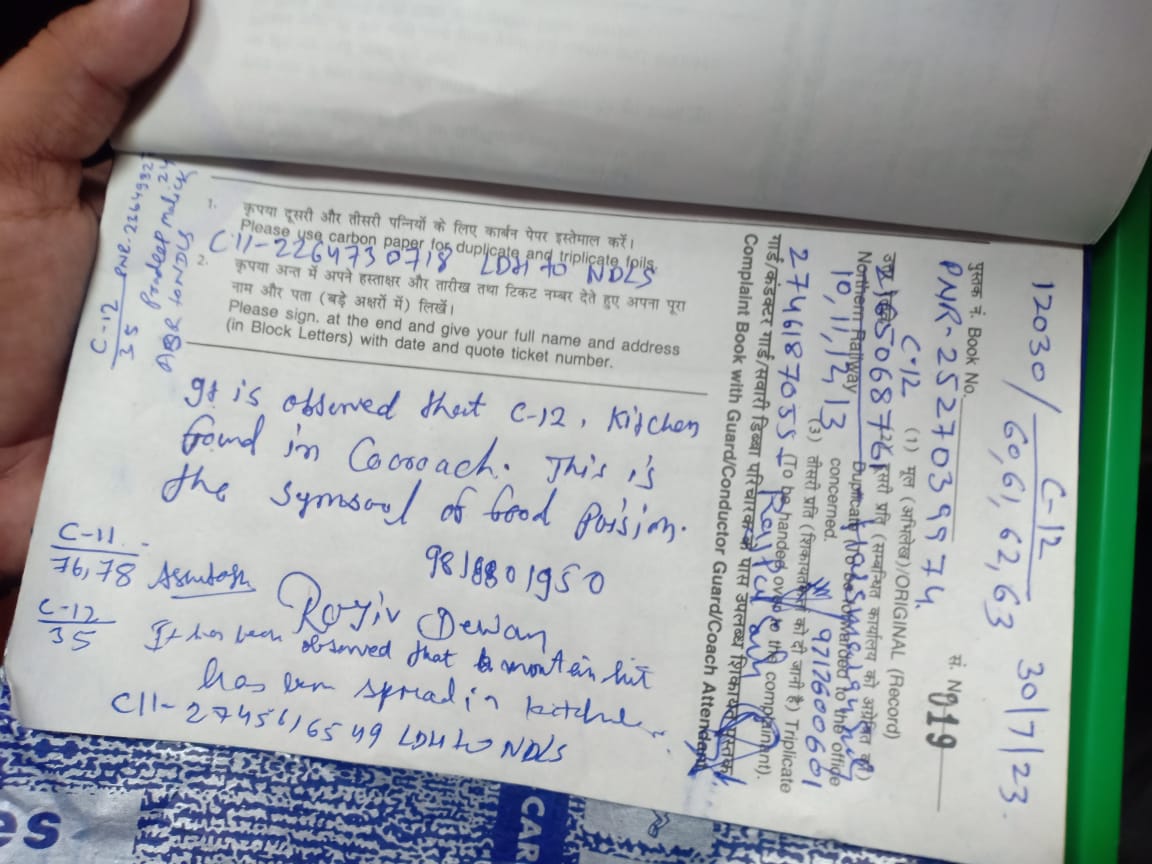 12030/ C-12 30/7/23
60, 61, 62, 63
पुस्तक नं. Book No. सं. No 019
PNR-2527039974.
C-12
(1) मूल (अभिलेख)/ORIGINAL (Record)
Northern Railway
10, 11, 12, 13
concerned.
(3) तीसरी प्रति (शिकायतकर्ता को दी जानी है) Triplicate
9717600661
2746187055 (To be handed over to the complainant).
गार्ड/कंडक्टर गार्ड/सवारी डिब्बा परिचारक के पास उपलब्ध शिकायत पुस्तक
Complaint Book with Guard/Conductor Guard/Coach Attendent
1. कृपया दूसरी और तीसरी पन्नियों के लिए कार्बन पेपर इस्तेमाल करें।
Please use carbon paper for duplicate and triplicate foils.
C11-2264730718 LDH to NDLS
2. कृपया अन्त में अपने हस्ताक्षर और तारीख तथा टिकट नम्बर देते हुए अपना पूरा
नाम और पता (बड़े अक्षरों में) लिखें।
Please sign. at the end and give your full name and address
(in Block Letters) with date and quote ticket number.
C-12 PNR.22649827
35 Pradeep malick 24
ASR to NDLS
It is observed that C-12, Kitchen
found in Cocroach. This is
the symsoul of food Poision.
C-11
76, 78 Ashutosh
Rajiv Dewan
C-12
35 It has been observed that
has been spread in kitchen
C11-2745616549 LDH to NDLS
es
CAR